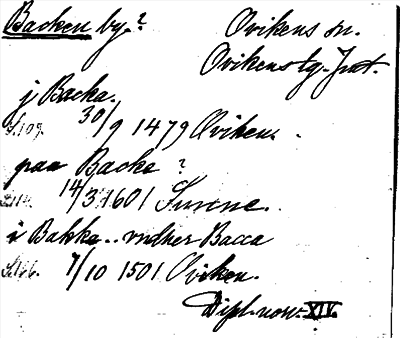 Backen by? Ovikens sn.
Ovikens tg. Jmt.
j Backa.
30/9 1479 Oviken.
paa Backe ?
14/3 1601 Sunne.
i Bakka.. vndher Bacca
7/10 1501 Oviken.
Dipl. norv. XIV.